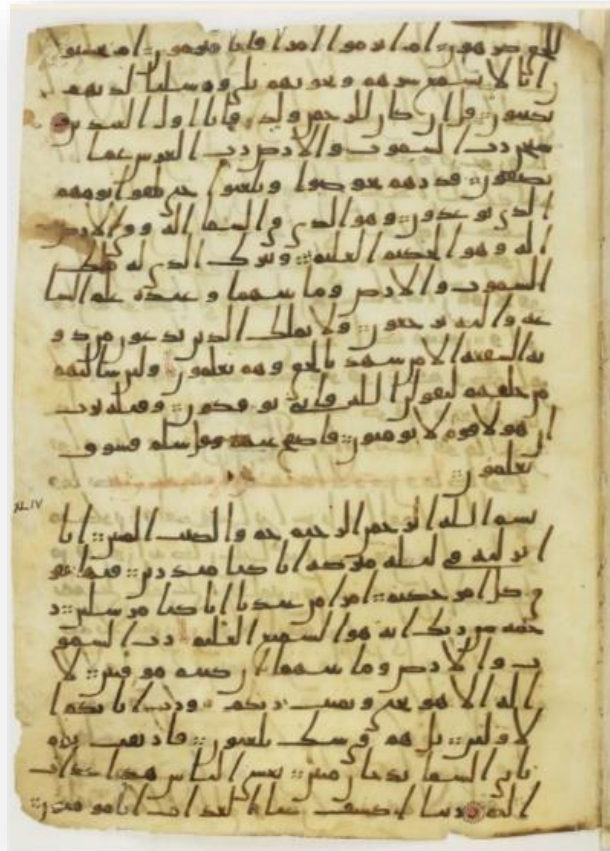 للحق كرهون ام ابرموا امرا فانا مبرمون ام يحسبو
ن انا لا نسمع سرهم ونجويهم بلى ورسلنا لديهم
يكتبون قل ان كان للرحمن ولد فانا اول العبدين
سبحن رب السموت والارض رب العرش عما
يصفون فذرهم يخوضوا ويلعبوا حتى يلقوا يومهم
الذي يوعدون وهو الذي في السما اله وفي الارض
اله وهو الحكيم العليم وتبرك الذي له ملك
السموت والارض وما بينهما وعنده علم السا
عة واليه ترجعون ولا يملك الذين يدعون من دو
نه الشفعة الا من شهد بالحق وهم يعلمون ولئن سالتهم
من خلقهم ليقولن الله فانى يوفكون وقيله يرب
ان هولا قوم لا يومنون فاصفح عنهم وقل سلم فسوف
تعلمون
XLIV
بسم الله الرحمن الرحيم حم والكتب المبين انا
انزلنه في ليلة مبركة انا كنا منذرين فيها يفر
ق كل امر حكيم امرا من عندنا انا كنا مرسلين ر
حمة من ربك انه هو السميع العليم رب السمو
ت والارض وما بينهما ان كنتم موقنين لا
اله الا هو يحي ويميت ربكم ورب ابايكم ا
لاولين بل هم في شك يلعبون فارتقب يوم
تاتي السما بدخان مبين يغشى الناس هذا عذاب
اليم ربنا اكشف عنا العذاب انا مومنون